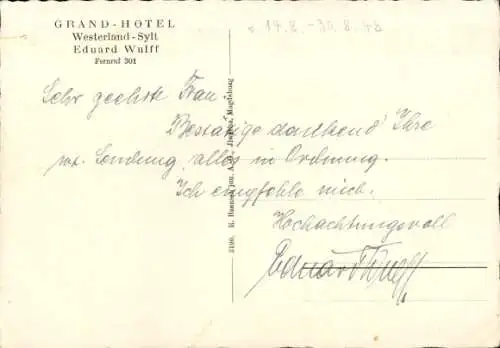 GRAND-HOTEL
Westerland-Sylt
Eduard Wulff
Fernruf 301
14.8.-30.8.43
Sehr geehrte Frau
Bestätige dankend Ihre
wt. Sendung, alles in Ordnung.
Ich empfehle mich.
Hochachtungsvoll
Eduard Wulff
Magdeburg